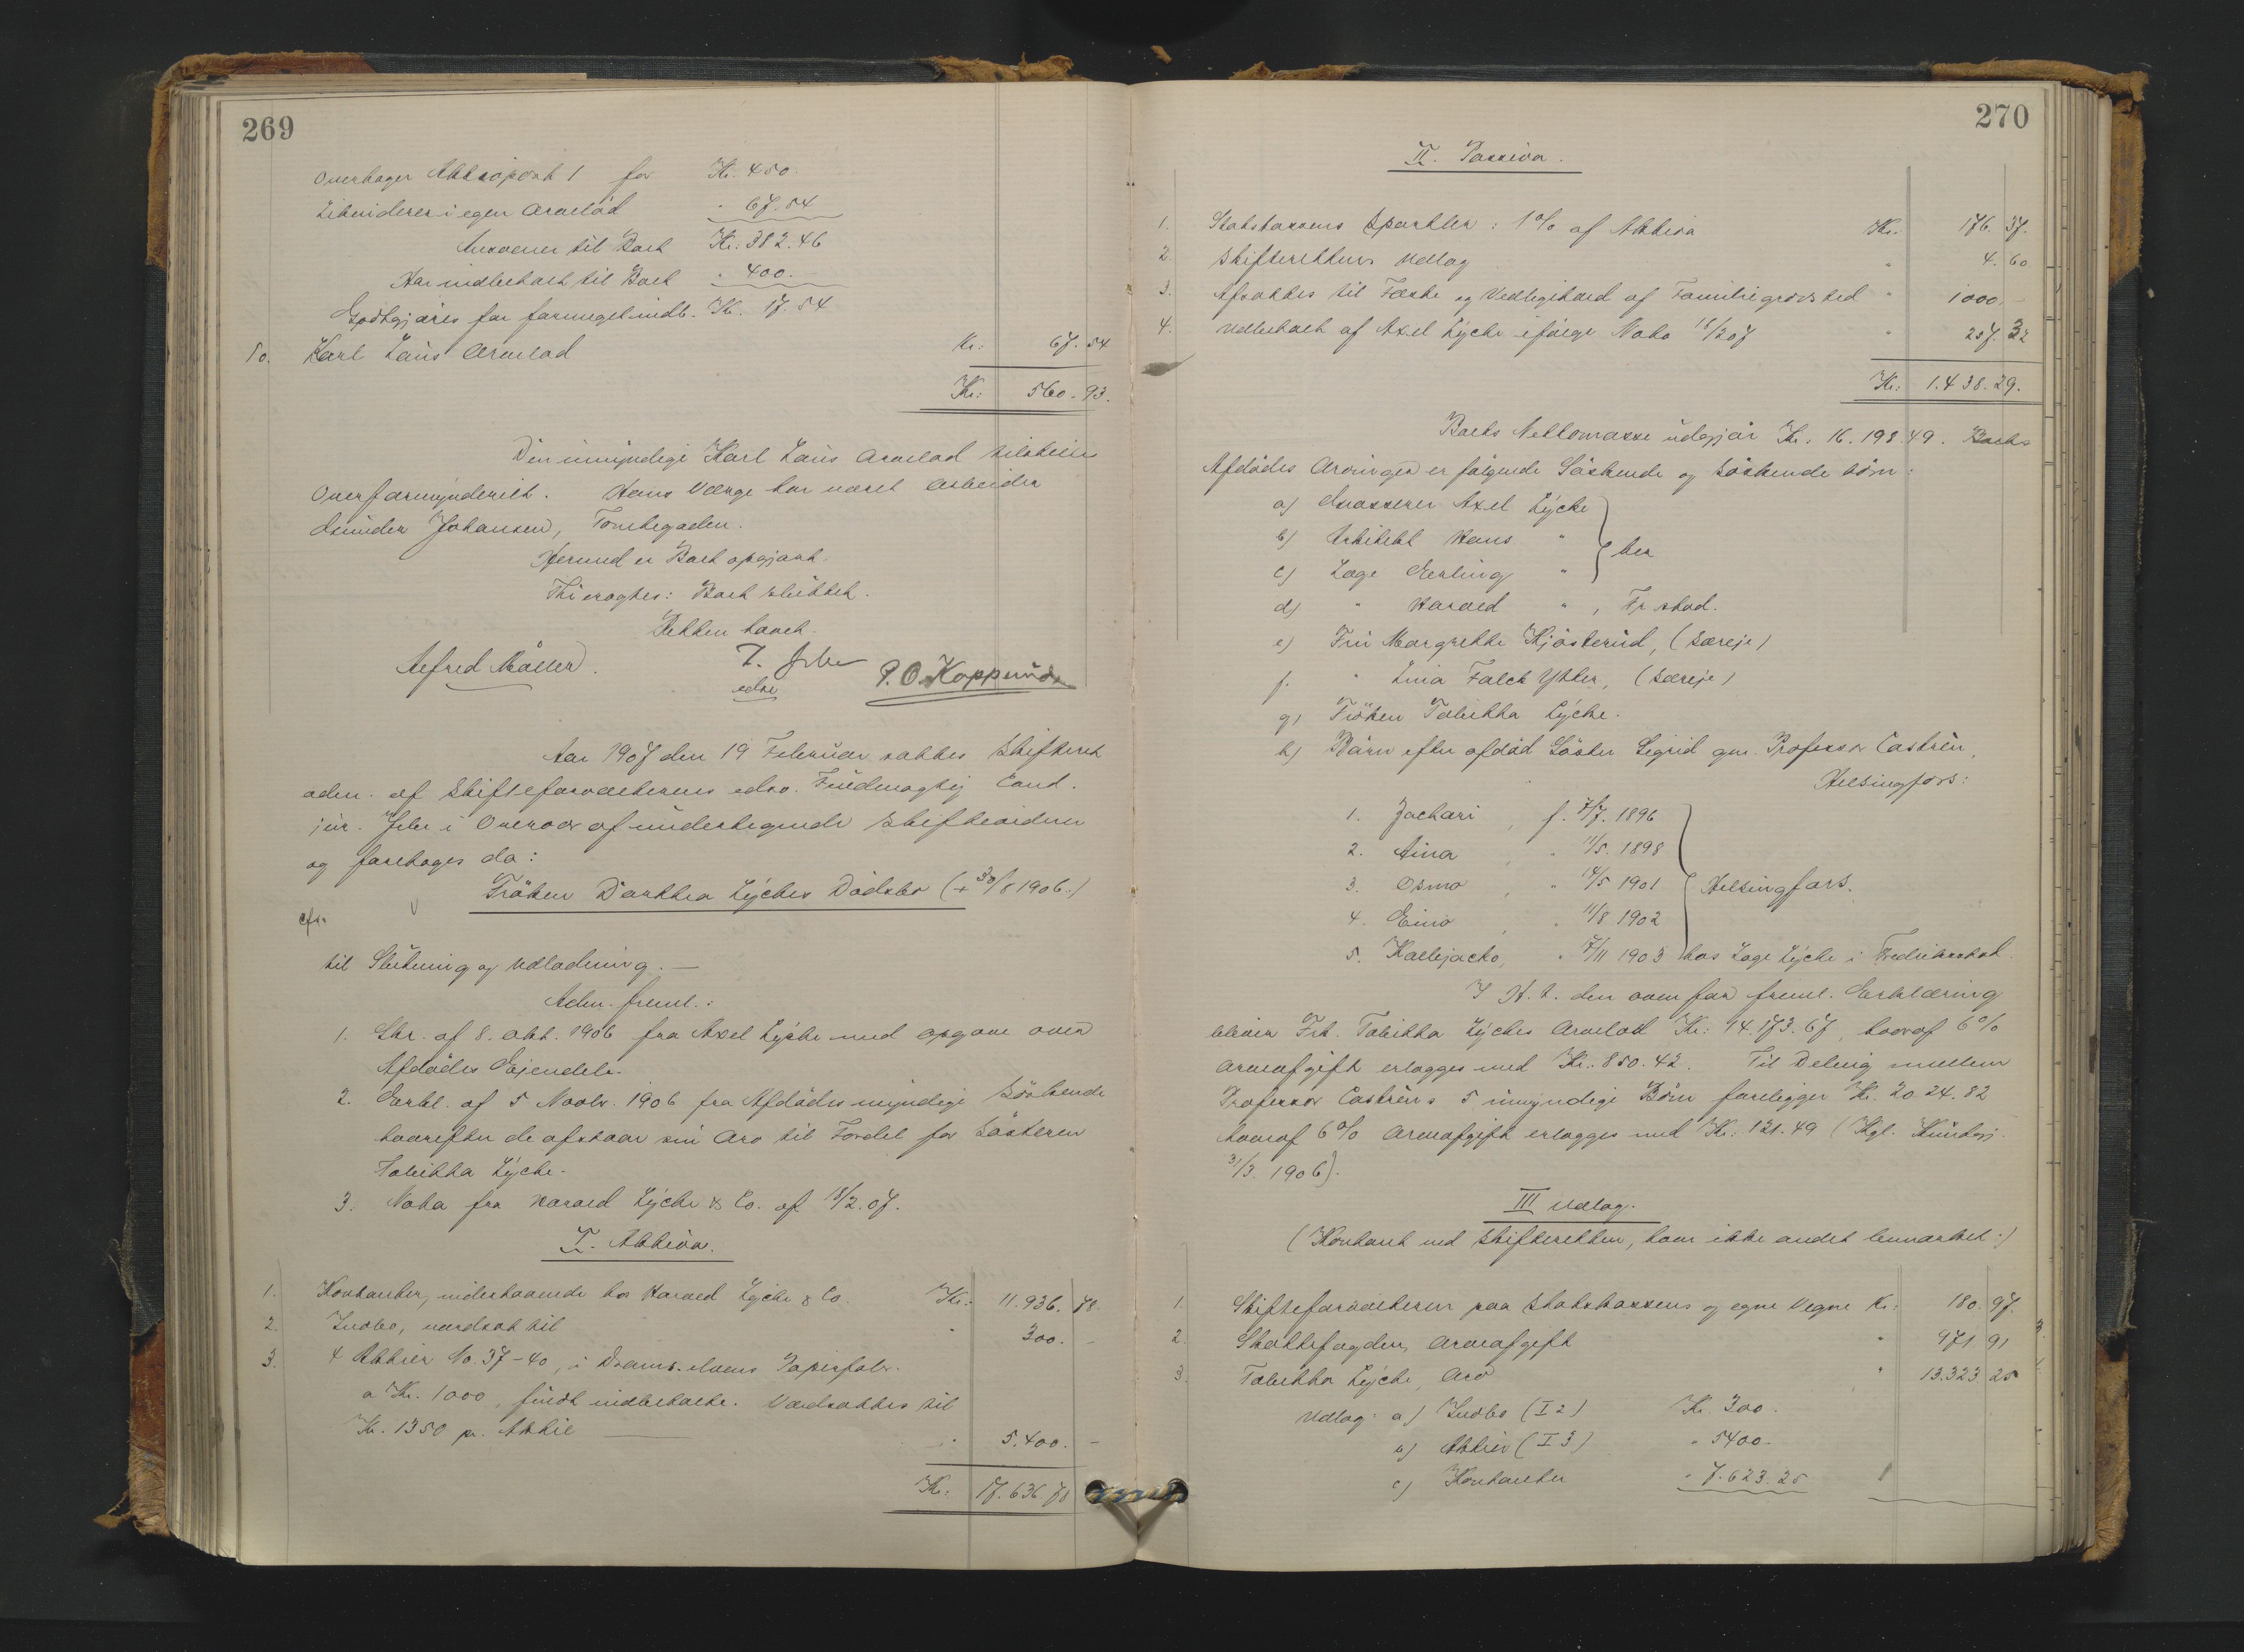 269
Overtager Aktivpost 1 for Kr. 450.
Likviderer i egen Arvelod " 67.54
Ansvarer til Boet Kr. 382.46
Har indbetalt til Boet " 400.
Godtgjøres for formeget indb. Kr. 17.54
10. Karl Laus Arvelod Kr: 67.54
Kr: 560.93.
Den umyndige Karl Laus Arvelod tilstilles
Overformynderiet. Hans Værge har været Arbeider
Johansen, Tomtegaden.
Hermed er Boet opgjort.
Thi eragtes: Boet sluttet.
Retten hævet.
Alfred Møller.
edsv.
P. O. Kopperud
Aar 1907 den 19 Februar sattes Skifteret
adm. af Skifteforvalterens edsv. Fuldmægtig Cand.
jur. i Overvær af undertegnede Skiftevidner
og foretoges da:
Frøken Dorthea Lyches Dødsbo (+ 30/8 1906.)
cfr.
til Slutning og Udlodning. —
Adm. freml.:
1. Skr. af 8. Okt. 1906 fra Axel Lyche med Opgave over
Afdødes Eiendele.
2. Erkl. af 5 Novbr. 1906 fra Afdødes myndige Søskende
hvorefter de afstaar sin Arv til Fordel for Søsteren
Tabitha Lyche.
3. Nota fra Harald Lyche & Co. af 18/2.07.
I. Aktiva.
1. Kontanter, indestaaende hos Harald Lyche & Co. Kr: 11.936.78.
2. Indbo, værdsat til " 300. -
3. 4 Aktier No. 37-40, i Drams.elvens Papirfabr.
a Kr. 1000, fuldt indbetalte. Værdsattes til
Kr. 1350 pr. Aktie " 5.400. -
Kr: 17.636.78
270
II. Passiva.
1. Statskassens Sportler: 1% af Aktiva Kr. 176.37.
2. Skifterettens Udlæg " 4.60
3. Afsættes til Fæste og Vedligehold af Familiegravsted " 1000. -
4. Udbetalt af Axel Lyche ifølge Nota 18/2 07 " 257.32
Kr: 1.438.29.
Boets Nettomasse udgjør Kr. 16.198.49. Boets
Afdødes Arvinger er følgende Søskende og Søskendebørn:
a) Axel Lyche
b) Arkitekt Hans "
c) Læge Erling "
her
d) " Harald " , Fr.stad.
e) Fru Margrethe Kjøsterud, (Særeje)
f. " Lina Falck Ytter, (Særeje)
g) Frøken Tabitha Lyche.
h) Børn efter afdød Søster Sigrid gm. Professor Castrén,
Helsingfors:
1. Zachari, f. 7/7. 1896
2. Aina, " 11/5. 1898
3. Osmo, " 14/5 1901
Helsingfors.
4. Eino, " 11/8 1902
5. Kallejacko, " 7/11 1903 hos Læge Lyche i Fredrikstad.
I H. t. den ovenfor freml. Erklæring
bliver Frk. Tabitha Lyches Arvelod Kr: 14.173.67, hvoraf 6%
Arveafgift erlægges med Kr: 850.42. Til Deling mellem
Professor Castréns 5 umyndige Børn foreligger Kr. 2024.82
hvoraf 6% Arveafgift erlægges med Kr. 121.49 (Kgl. Kundgj.
31/3. 1906).
III Udlæg.
(Kontant ved Skifteretten, hvor ikke andet bemærket.)
1. Skifteforvalteren paa Statskassens og egne Vegne Kr: 180.97.
2. Skattefogden, Arveafgift " 971.91
3. Tabitha Lyche, Arv " 13.323.25
Udlæg: a) Indbo (I 2) Kr. 300.
b) Aktier (I 3) " 5400.
c) Kontanter " 7.623.25